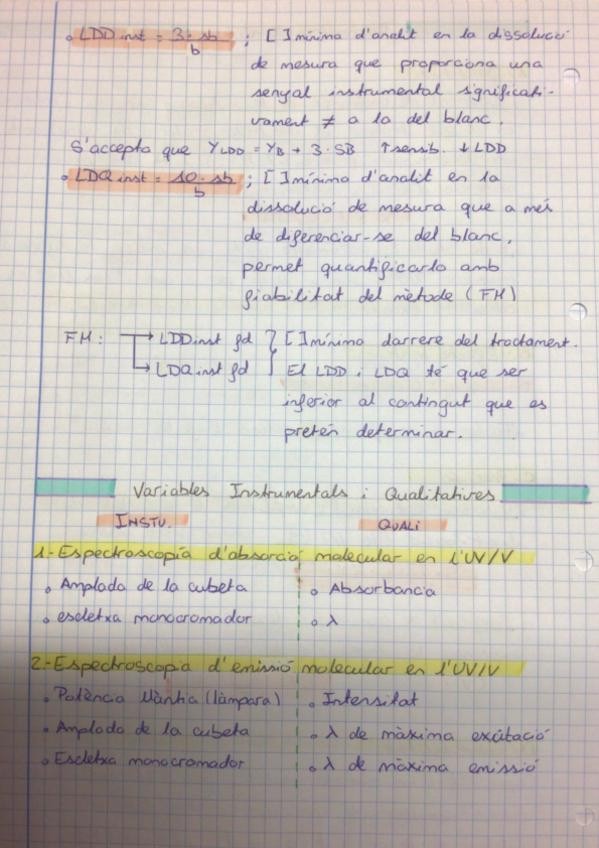 • LDD inst = 3·sb / b ; [ ] mínima d'analit en la dissolució
de mesura que proporciona una
senyal instrumental significati-
vament ≠ a la del blanc.
S'accepta que YLDD = YB + 3·SB ↑sensib. ↓LDD
• LDQ inst = 10·sb / b ; [ ] mínima d'analit en la
dissolució de mesura que a més
de diferenciar-se del blanc,
permet quantificarlo amb
fiabilitat del mètode (FM)
FM: → LDD inst fd } [ ] mínima darrere del tractament.
↳ LDQ inst fd } El LDD i LDQ té que ser
inferior al contingut que es
pretén determinar.
Variables Instrumentals i Qualitatives
INSTU. QUALI
1.- Espectroscopía d'absorció molecular en l'UV/V
• Amplada de la cubeta • Absorbancia
• escletxa monocromador • λ
2.- Espectroscopia d'emissió molecular en l'UV/V
• Potència (làmpara) • Intensitat
• Amplada de la cubeta • λ de màxima excitació
• Escletxa monocromador • λ de màxima emissió